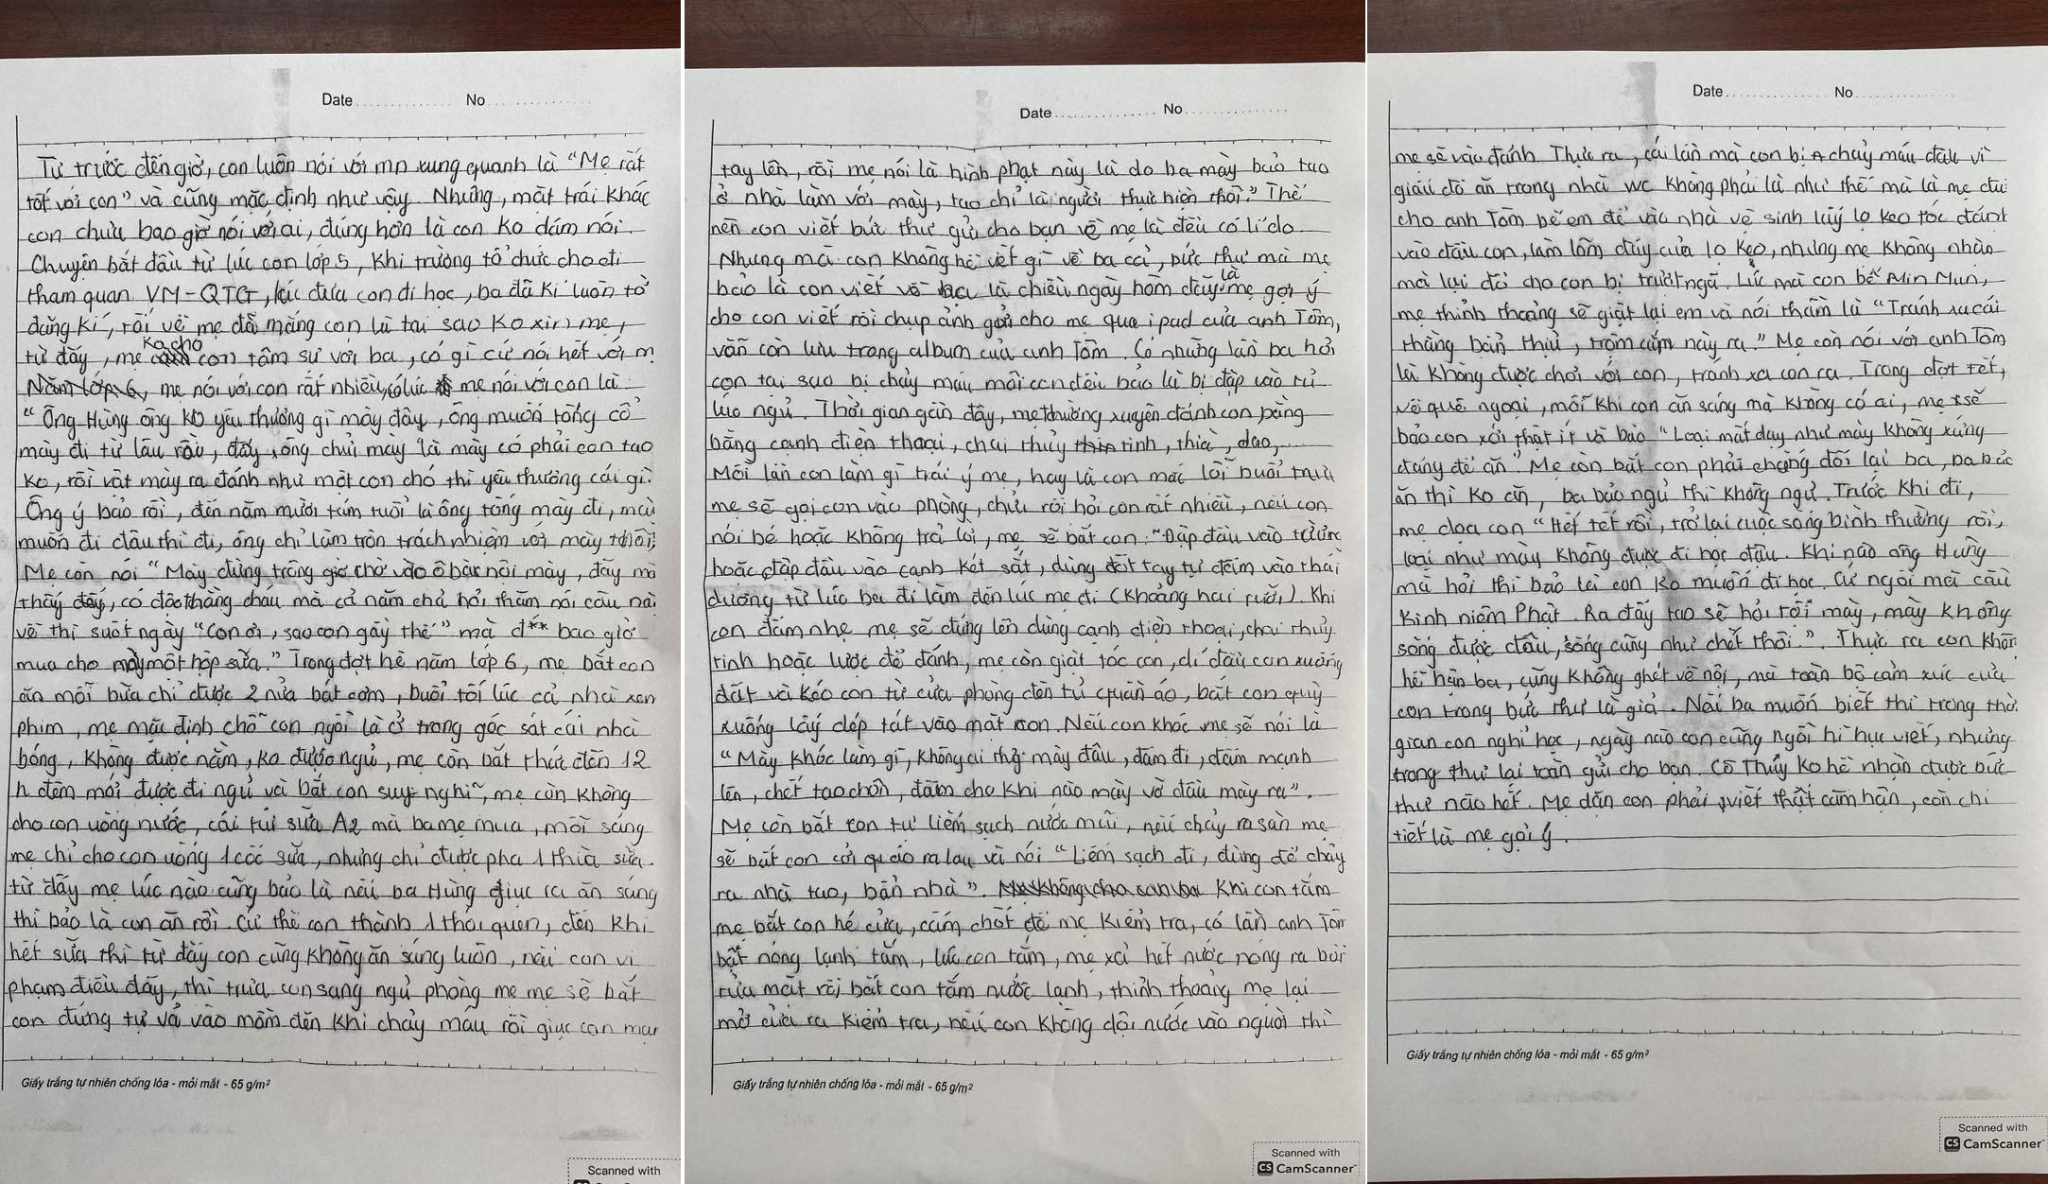 Date No
Từ trước đến giờ, con luôn nói với mn xung quanh là "Mẹ rất
tốt với con" và cũng mặc định như vậy. Nhưng, mặt trái khác
con chưa bao giờ nói với ai, đúng hơn là con ko dám nói.
Chuyện bắt đầu từ lúc con lớp 5, khi trường tổ chức cho đi
tham quan VM-QTG, lúc đưa con đi học, ba đã kí luôn tờ
đăng kí, rồi về mẹ đã mắng con là tại sao ko xin mẹ,
từ đấy, mẹ ko cho con tâm sự với ba, có gì cứ nói hết với m
Năm lớp 6, mẹ nói với con rất nhiều, có lúc mẹ nói với con là
"Ông Hùng ông ko yêu thương gì mày đâu, ông muốn tống cổ
mày đi từ lâu rồi, đấy, ông chửi mày là mày có phải con tao
ko, rồi vặt mày ra đánh như một con chó thì yêu thương cái gì.
Ông ý bảo rồi, đến năm mười tám tuổi là ông tống mày đi, mày
muốn đi đâu thì đi, ông chỉ làm tròn trách nhiệm với mày thôi.
Mẹ còn nói "Mày đừng trông giờ chờ vào ô bà nội mày, đấy mà
thấy đấy, có đứa thằng cháu mà cả năm chả hỏi thăm nói câu nà
về thì suốt ngày "Con ơi, sao con gầy thế" mà đ** bao giờ
mua cho mày một hộp sữa." Trong đợt hè năm lớp 6, mẹ bắt con
ăn mỗi bữa chỉ được 2 nửa bát cơm, buổi tối lúc cả nhà xem
phim, mẹ mặc định chỗ con ngồi là ở trong góc sát cái nhà
bóng, không được nằm, ko được ngủ, mẹ còn bắt thức đến 12
h đêm mới được đi ngủ và bắt con suy nghĩ, mẹ còn không
cho con uống nước, cái túi sữa A2 mà ba mẹ mua, mỗi sáng
mẹ chỉ cho con uống 1 cốc sữa, nhưng chỉ được pha 1 thìa sữa.
từ đấy mẹ lúc nào cũng bảo là nếu ba Hùng giục ra ăn sáng
thì bảo là con ăn rồi. Cứ thế con thành 1 thói quen, đến khi
hết sữa thì từ đấy con cũng không ăn sáng luôn, nếu con vi
phạm điều đấy, thì trưa con sang ngủ phòng mẹ mẹ sẽ bắt
con đứng tự vả vào mồm đến khi chảy máu rồi giục con mau
Giấy trắng tự nhiên chống lóa - mỏi mắt - 65 g/m²
Scanned with
Date No
tay lên, rồi mẹ nói là hình phạt này là do ba mày bảo tao
ở nhà làm với mày, tao chỉ là người thực hiện thôi." Thế
nên con viết bức thư gửi cho bạn về mẹ là đều có lí do.
Nhưng mà con không hề viết gì về ba cả, bức thư mà mẹ
bảo là con viết về ba là chiều ngày hôm đấy là mẹ gợi ý
cho con viết rồi chụp ảnh gửi cho mẹ qua ipad của anh Tôm,
vẫn còn lưu trong album của anh Tôm. Có những lần ba hỏi
con tại sao bị chảy máu môi con đều bảo là bị đập vào tủ
lúc ngủ. Thời gian gần đây, mẹ thường xuyên đánh con bằng
bằng cạnh điện thoại, chai thủy tinh, thìa, dao,...
Mỗi lần con làm gì trái ý mẹ, hay là con mắc lỗi buổi trưa
mẹ sẽ gọi con vào phòng, chửi rồi hỏi con rất nhiều, nếu con
nói bé hoặc không trả lời, mẹ sẽ bắt con: "Đập đầu vào tường
hoặc đập đầu vào cạnh két sắt, dùng đốt tay tự đấm vào thái
dương từ lúc ba đi làm đến lúc mẹ đi (khoảng hai rưỡi). Khi
con đấm nhẹ mẹ sẽ đứng lên dùng cạnh điện thoại, chai thủy
tinh hoặc lược để đánh, mẹ còn giật tóc con, dí đầu con xuống
đất và kéo con từ cửa phòng đến tủ quần áo, bắt con quỳ
xuống lấy dép tát vào mặt con. Nếu con khóc mẹ sẽ nói là
"Mày khóc làm gì, không ai thg mày đâu, đấm đi, đấm mạnh
lên, chết tao chôn, đấm cho khi nào mày vỡ đầu mày ra".
Mẹ còn bắt con tự liếm sạch nước mũi, nếu chảy ra sàn mẹ
sẽ bắt con cởi quần áo ra lau và nói "Liếm sạch đi, đừng để chảy
ra nhà tao, bẩn nhà". Khi con tắm
mẹ bắt con hé cửa, cấm chốt để mẹ kiểm tra, có lần anh Tôm
bật nóng lạnh tắm, lúc con tắm, mẹ xả hết nước nóng ra bồn
rửa mặt rồi bắt con tắm nước lạnh, thỉnh thoảng mẹ lại
mở cửa ra kiểm tra, nếu con không dội nước vào người thì
Giấy trắng tự nhiên chống lóa - mỏi mắt - 65 g/m²
Scanned with
CS CamScanner
Date No
mẹ sẽ vào đánh. Thực ra, cái lần mà con bị chảy máu đầu vì
giấu đồ ăn trong nhà wc không phải là như thế mà là mẹ đưa
cho anh Tôm bế em để vào nhà vệ sinh lấy lọ keo tóc đánh
vào đầu con, làm lõm đáy của lọ keo, nhưng mẹ không nhận
mà lại đổ cho con bị trượt ngã. Lúc mà con bế Min Mun,
mẹ thỉnh thoảng sẽ giật lại em và nói thầm là "Tránh xa cái
thằng bẩn thỉu, trộm cắp này ra." Mẹ còn nói với anh Tôm
là không được chơi với con, tránh xa con ra. Trong đợt Tết,
về quê ngoại, mỗi khi con ăn sáng mà không có ai, mẹ sẽ
bảo con xới thật ít và bảo "Loại mất dạy như mày không xứng
đáng để ăn". Mẹ còn bắt con phải chống đối lại ba, ba bảo
ăn thì ko ăn, ba bảo ngủ thì không ngủ. Trước khi đi,
mẹ dọa con "Hết tết rồi, trở lại cuộc sống bình thường rồi,
loại như mày không được đi học đâu. Khi nào ông Hùng
mà hỏi thì bảo là con ko muốn đi học. Cứ ngồi mà cầu
kinh niệm Phật. Ra đấy tao sẽ hỏi tội mày, mày không
sống được đâu, sống cũng như chết thôi.". Thực ra con không
hề hận ba, cũng không ghét về nội, mà toàn bộ cảm xúc của
con trong bức thư là giả. Nếu ba muốn biết thì trong thời
gian con nghỉ học, ngày nào con cũng ngồi hì hục viết, nhưng
trong thư lại toàn gửi cho bạn. Cô Thúy ko hề nhận được bức
thư nào hết. Mẹ dặn con phải viết thật căm hận, còn chi
tiết là mẹ gợi ý.
Giấy trắng tự nhiên chống lóa - mỏi mắt - 65 g/m²
Scanned with
CS CamScanner